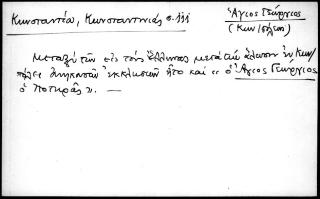 Κωνσταντίου, Κωνσταντινιάς σ. 111
Ἅγιος Γεώργιος
(Κων/πόλεως)
Μεταξὺ τῶν εἰς τοὺς Ἕλληνας μετὰ τὴν ἅλωσιν ἐν Κων/
πόλει ἐκκλησιῶν ἦτο καὶ « ὁ Ἅγιος Γεώργιος
ὁ Ποτηρᾶς ». —